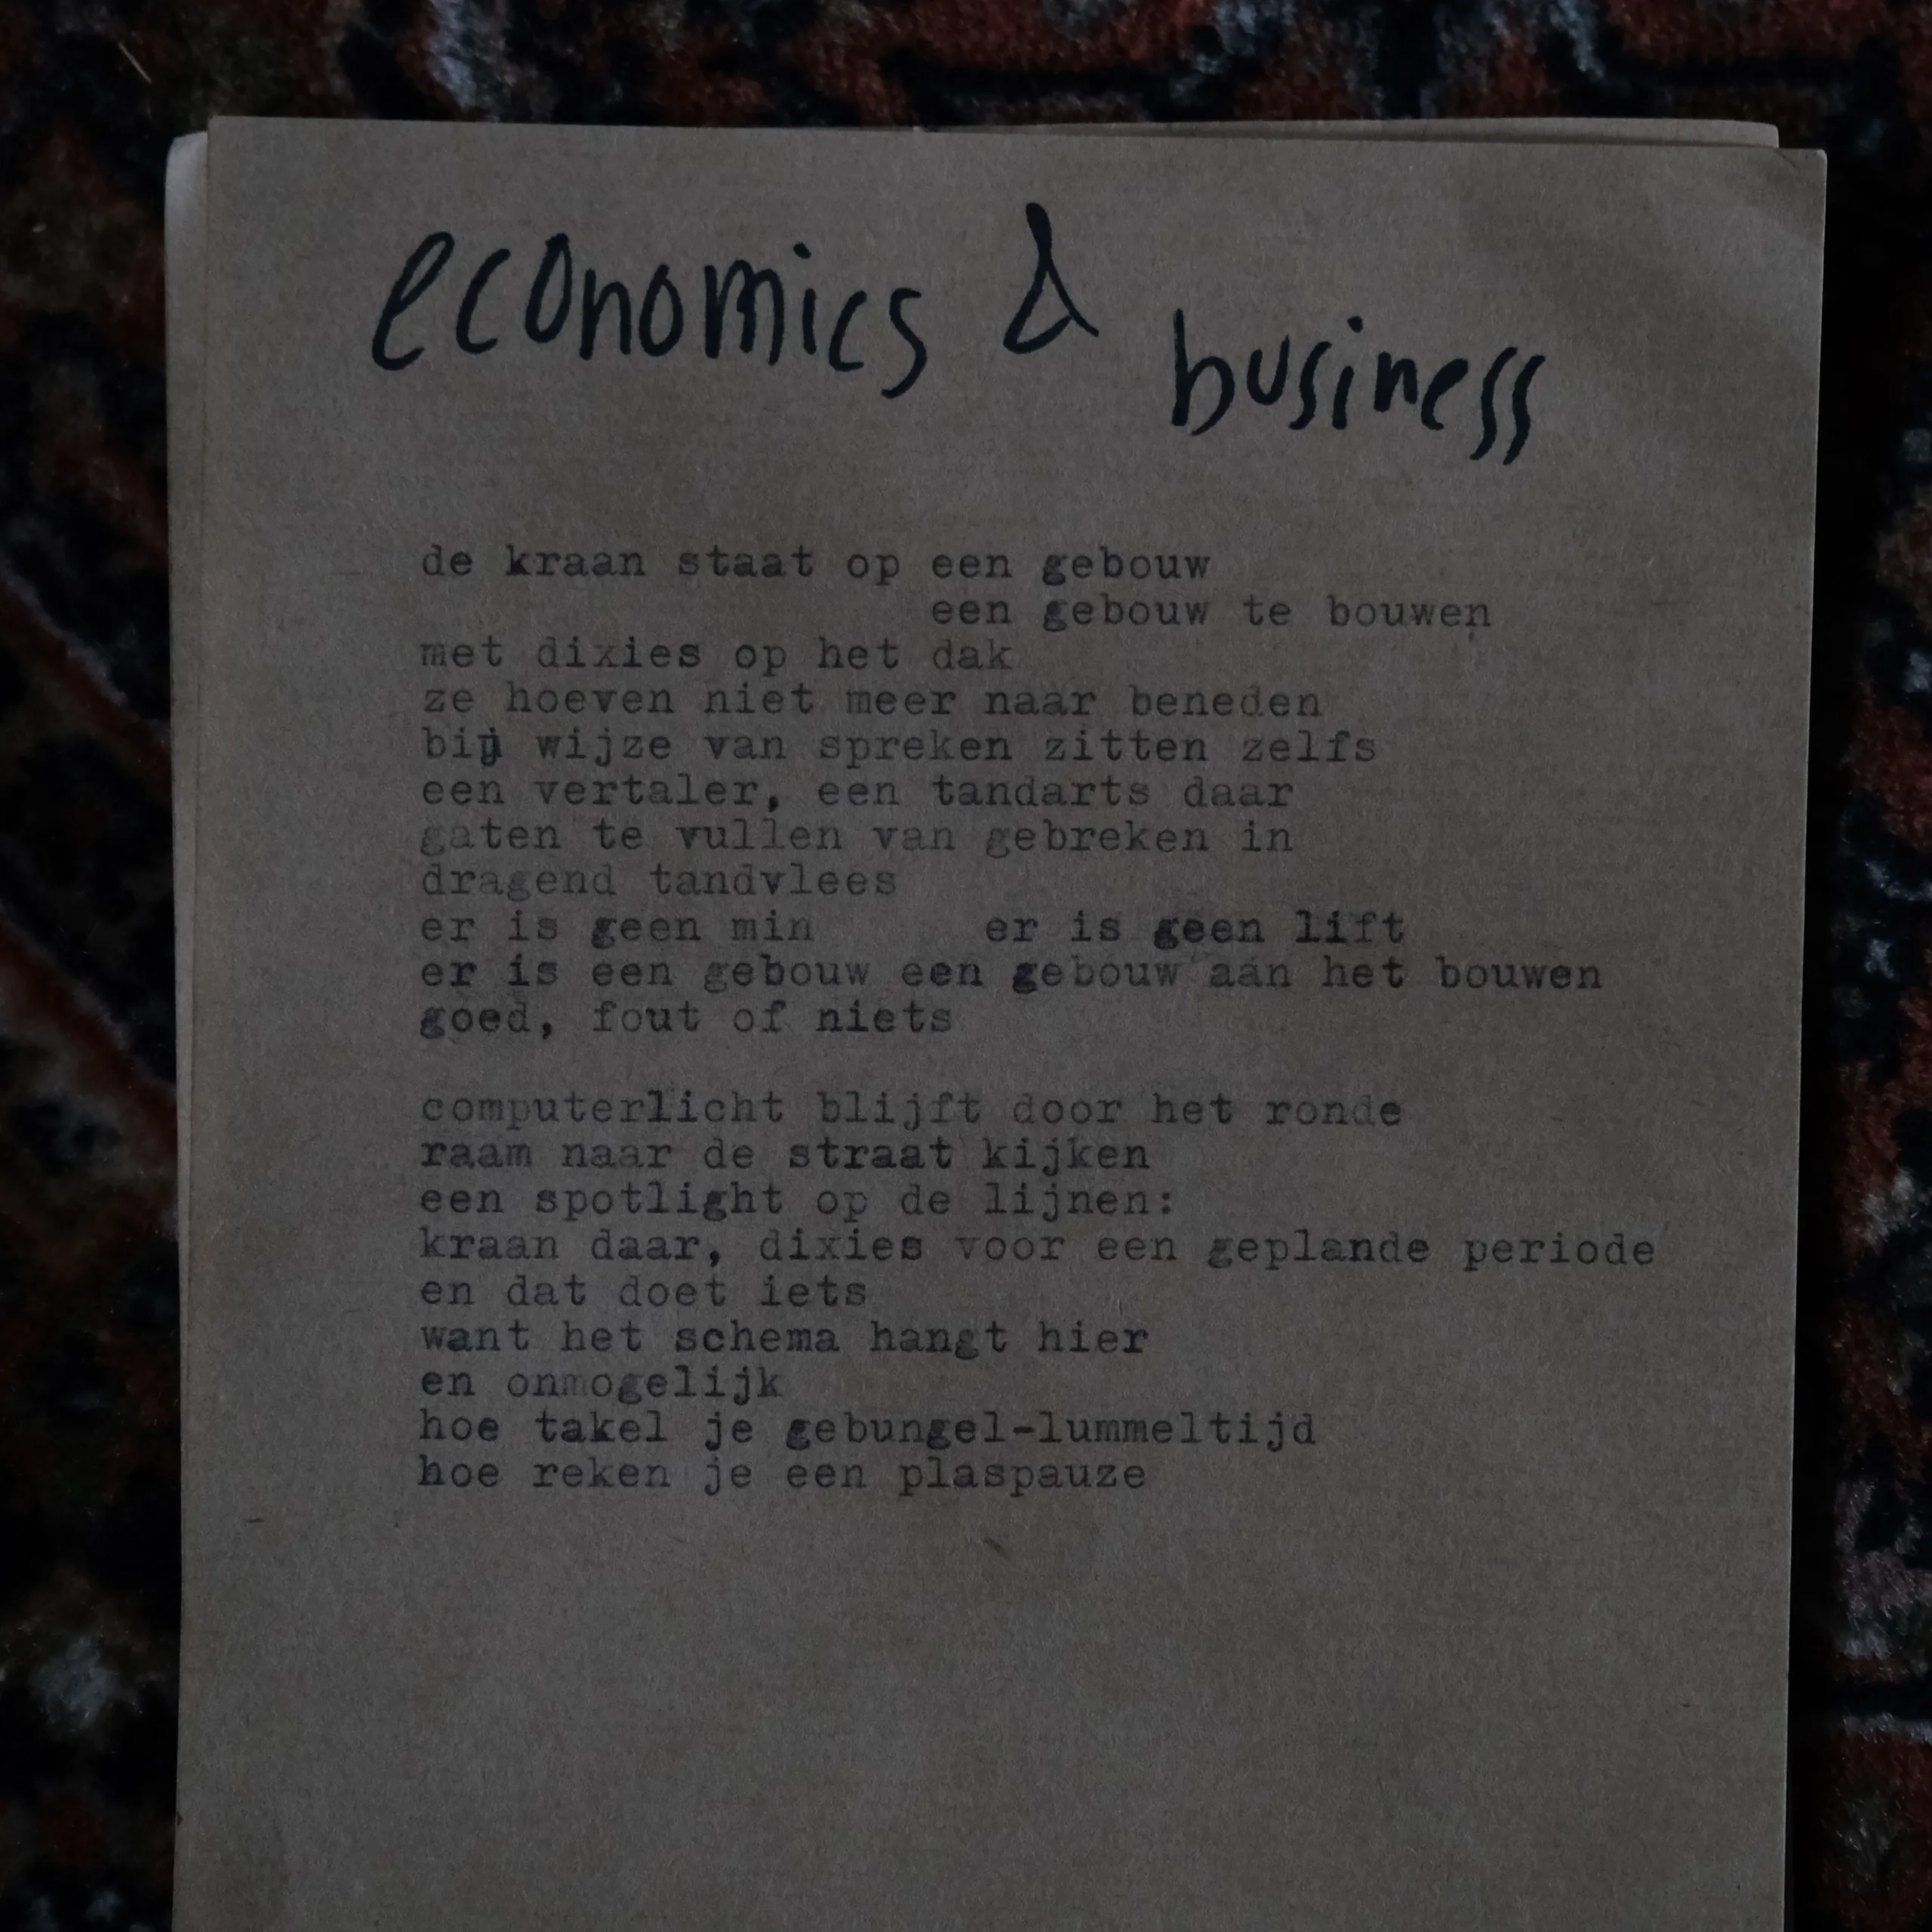 economics & business
de kraan staat op een gebouw
een gebouw te bouwen
met dixies op het dak
ze hoeven niet meer naar beneden
bij wijze van spreken zitten zelfs
een vertaler, een tandarts daar
gaten te vullen van gebreken in
dragend tandvlees
er is geen min er is geen lift
er is een gebouw een gebouw aan het bouwen
goed, fout of niets
computerlicht blijft door het ronde
raam naar de straat kijken
een spotlight op de lijnen:
kraan daar, dixies voor een geplande periode
en dat doet iets
want het schema hangt hier
en onmogelijk
hoe takel je gebungel-lummeltijd
hoe reken je een plaspauze